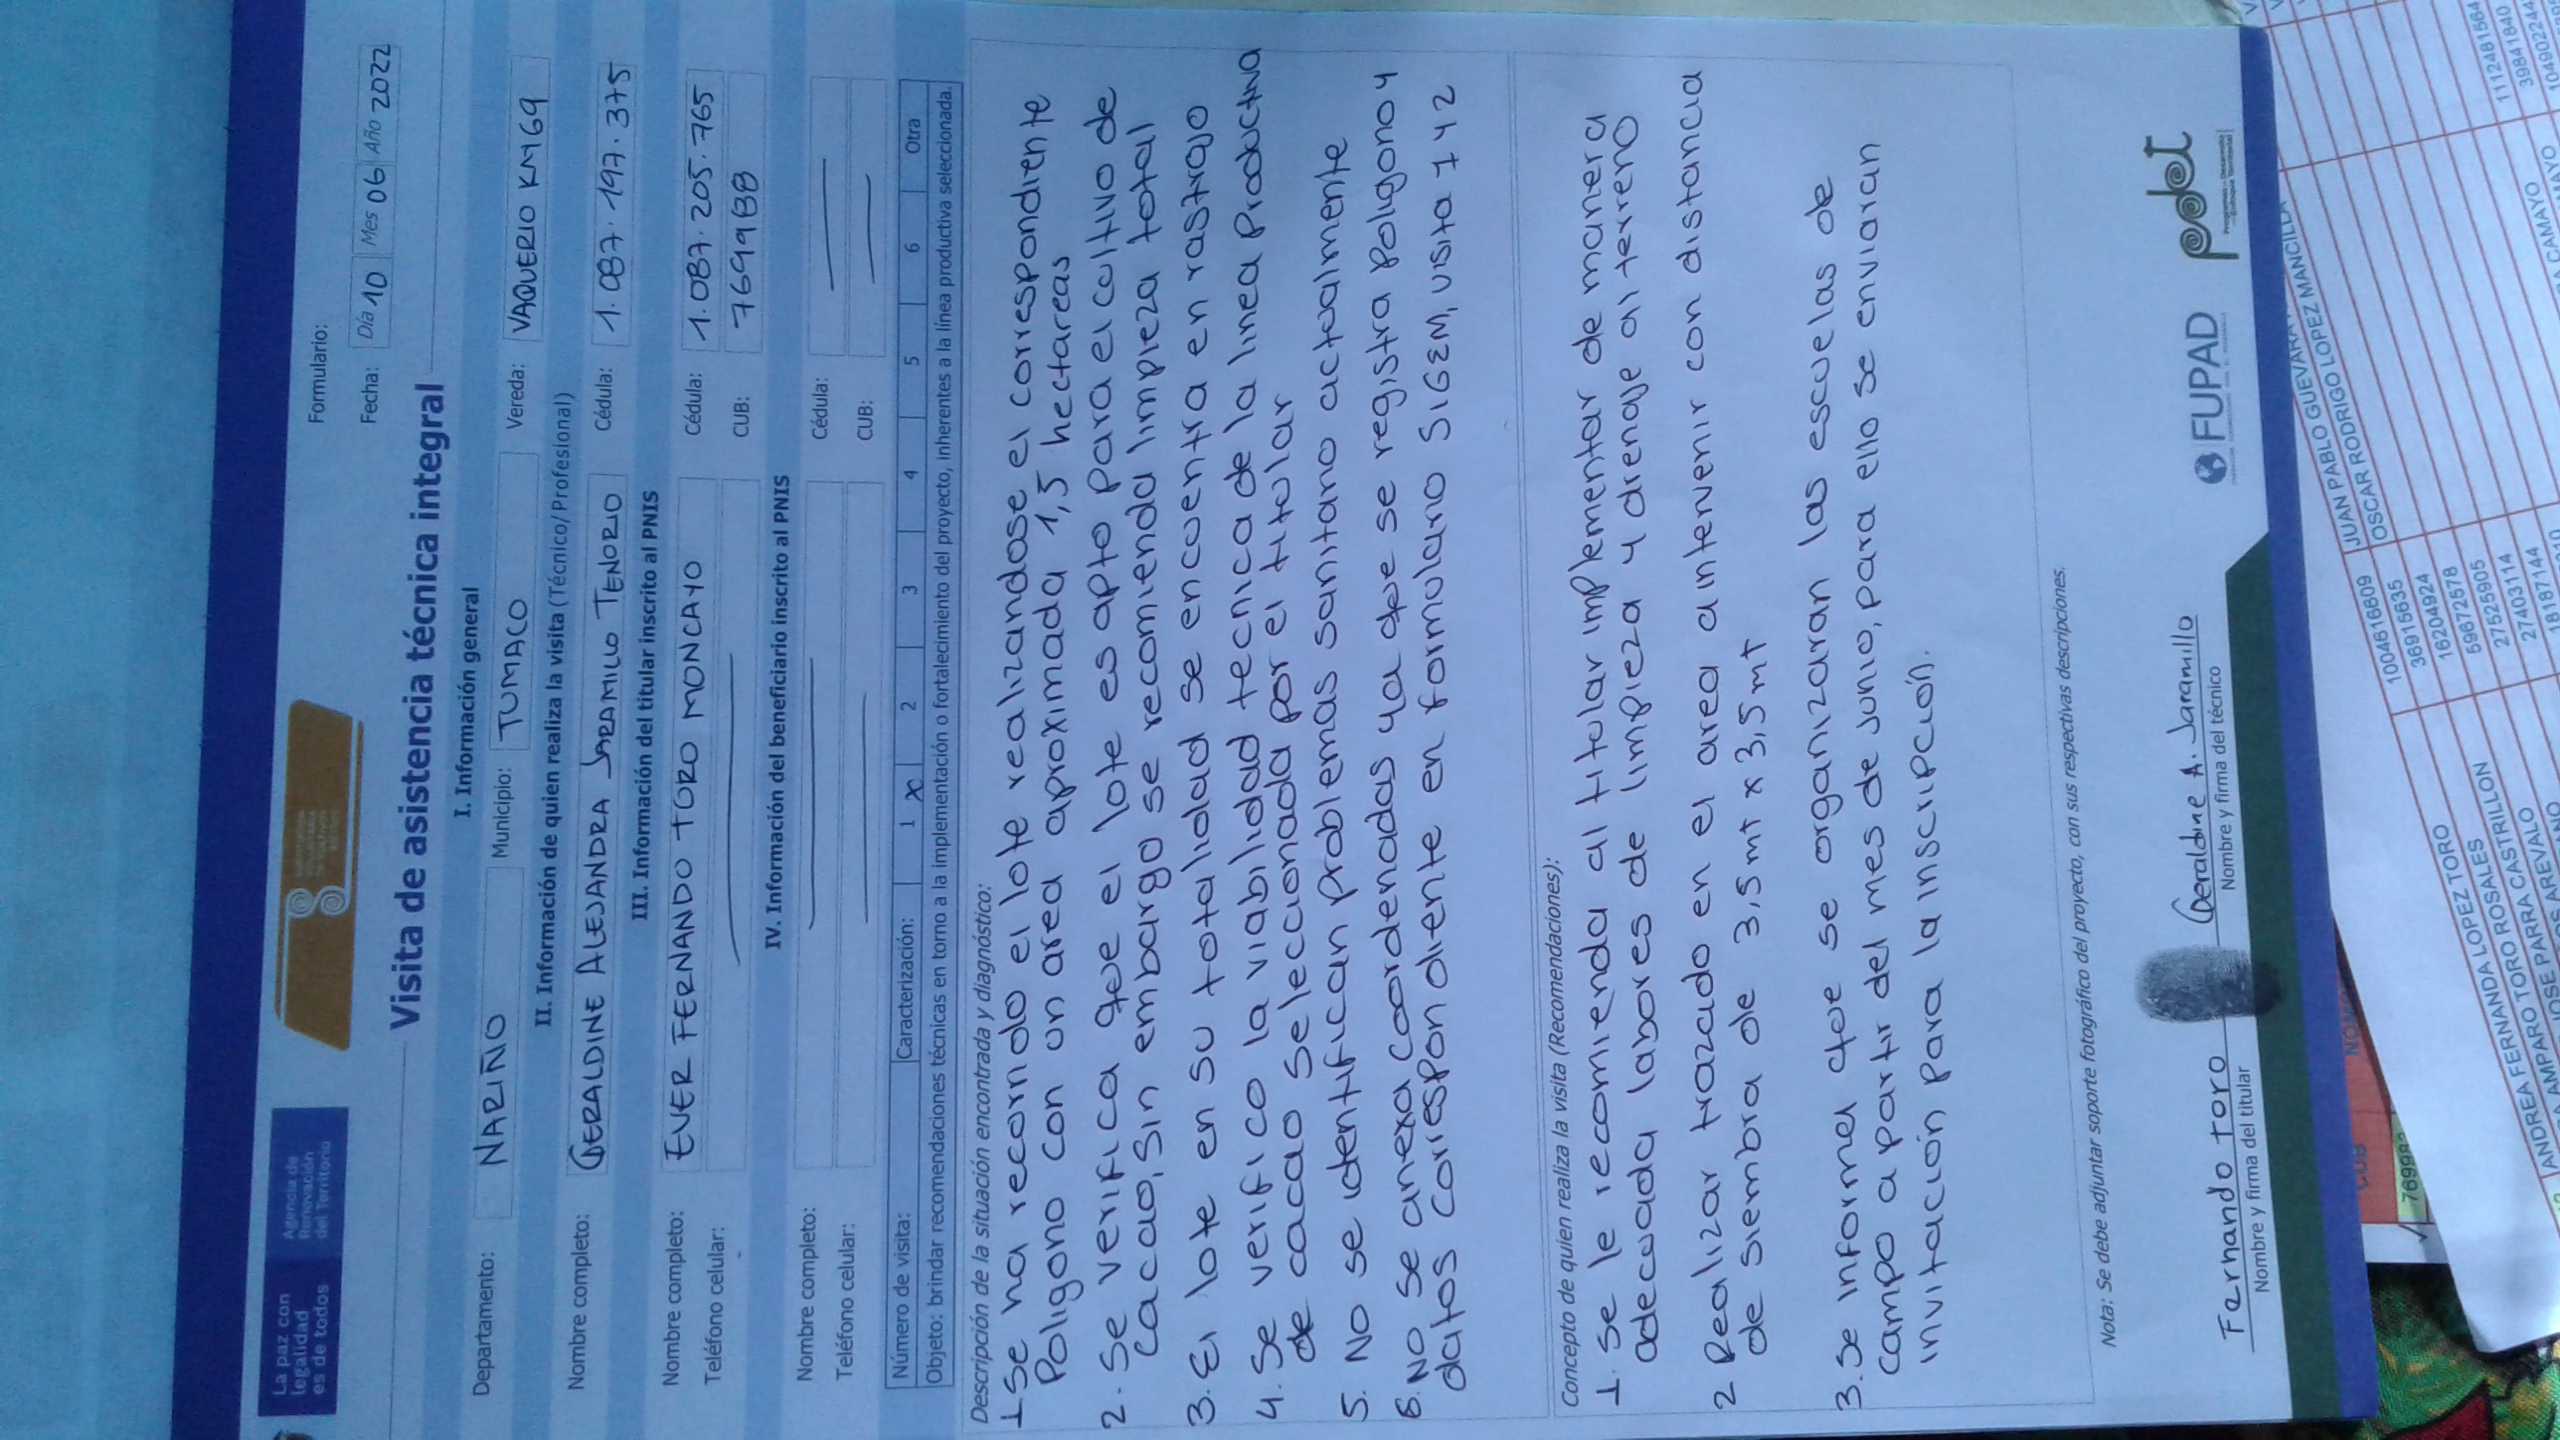 La paz con
legalidad
es de todos
Agencia de
Renovación
del Territorio
Formulario:
Fecha: Día 10 Mes 06 Año 2022
Visita de asistencia técnica integral
I. Información general
Departamento: NARIÑO Municipio: TUMACO Vereda: VAQUERIO KM 69
II. Información de quien realiza la visita (Técnico/Profesional)
Nombre completo: GERALDINE ALEJANDRA JARAMILLO TENORIO Cédula: 1.087.197.375
III. Información del titular inscrito al PNIS
Nombre completo: EVER FERNANDO TORO MONCAYO Cédula: 1.087.205.765
Teléfono celular: CUB: 7699BB
IV. Información del beneficiario inscrito al PNIS
Nombre completo: Cédula:
Teléfono celular: CUB:
Número de visita: Caracterización: 1 X 2 3 4 5 6 Otra
Objeto: brindar recomendaciones técnicas en torno a la implementación o fortalecimiento del proyecto, inherentes a la línea productiva seleccionada.
Descripción de la situación encontrada y diagnóstico:
1 Se ha recorrido el lote realizandose el correspondiente
Poligono con un area aproximada 1,5 hectareas
2. Se verifica que el lote es apto para el cultivo de
cacao, sin embargo se recomienda limpieza total
3. El lote en su totalidad se encuentra en rastrojo
4. Se verifico la viabilidad tecnica de la linea Productiva
de cacao seleccionada por el titular
5. No se identifican problemas sanitario actualmente
6. NO se anexa coordenadas ya que se registra poligono y
datos correspondiente en formulario SIGEM, visita 1 y 2
Concepto de quien realiza la visita (Recomendaciones):
1. Se le recomienda al titular implementar de manera
adecuada labores de limpieza y drenaje al terreno
2 Realizar trazado en el area a intervenir con distancia
de siembra de 3,5 mt x 3,5 mt
3. Se informa que se organizaran las escuelas de
campo a partir del mes de Junio, para ello se enviaran
invitación para la inscripción.
Nota: Se debe adjuntar soporte fotográfico del proyecto, con sus respectivas descripciones.
Fernando toro
Nombre y firma del titular
Geraldine A. Jaramillo
Nombre y firma del técnico
FUPAD
pdet
CUB
ANDREA FERNANDA LOPEZ TORO
AMPARO TORO ROSALES
PARRA CASTRILLON
JOSE PARRA AREVALO
1004616609
36915635
16204924
59672578
27525905
27403114
18187144
JUAN PABLO GUEVARA
OSCAR RODRIGO LOPEZ MANCILLA
CAMAYO
1112481564
39841840